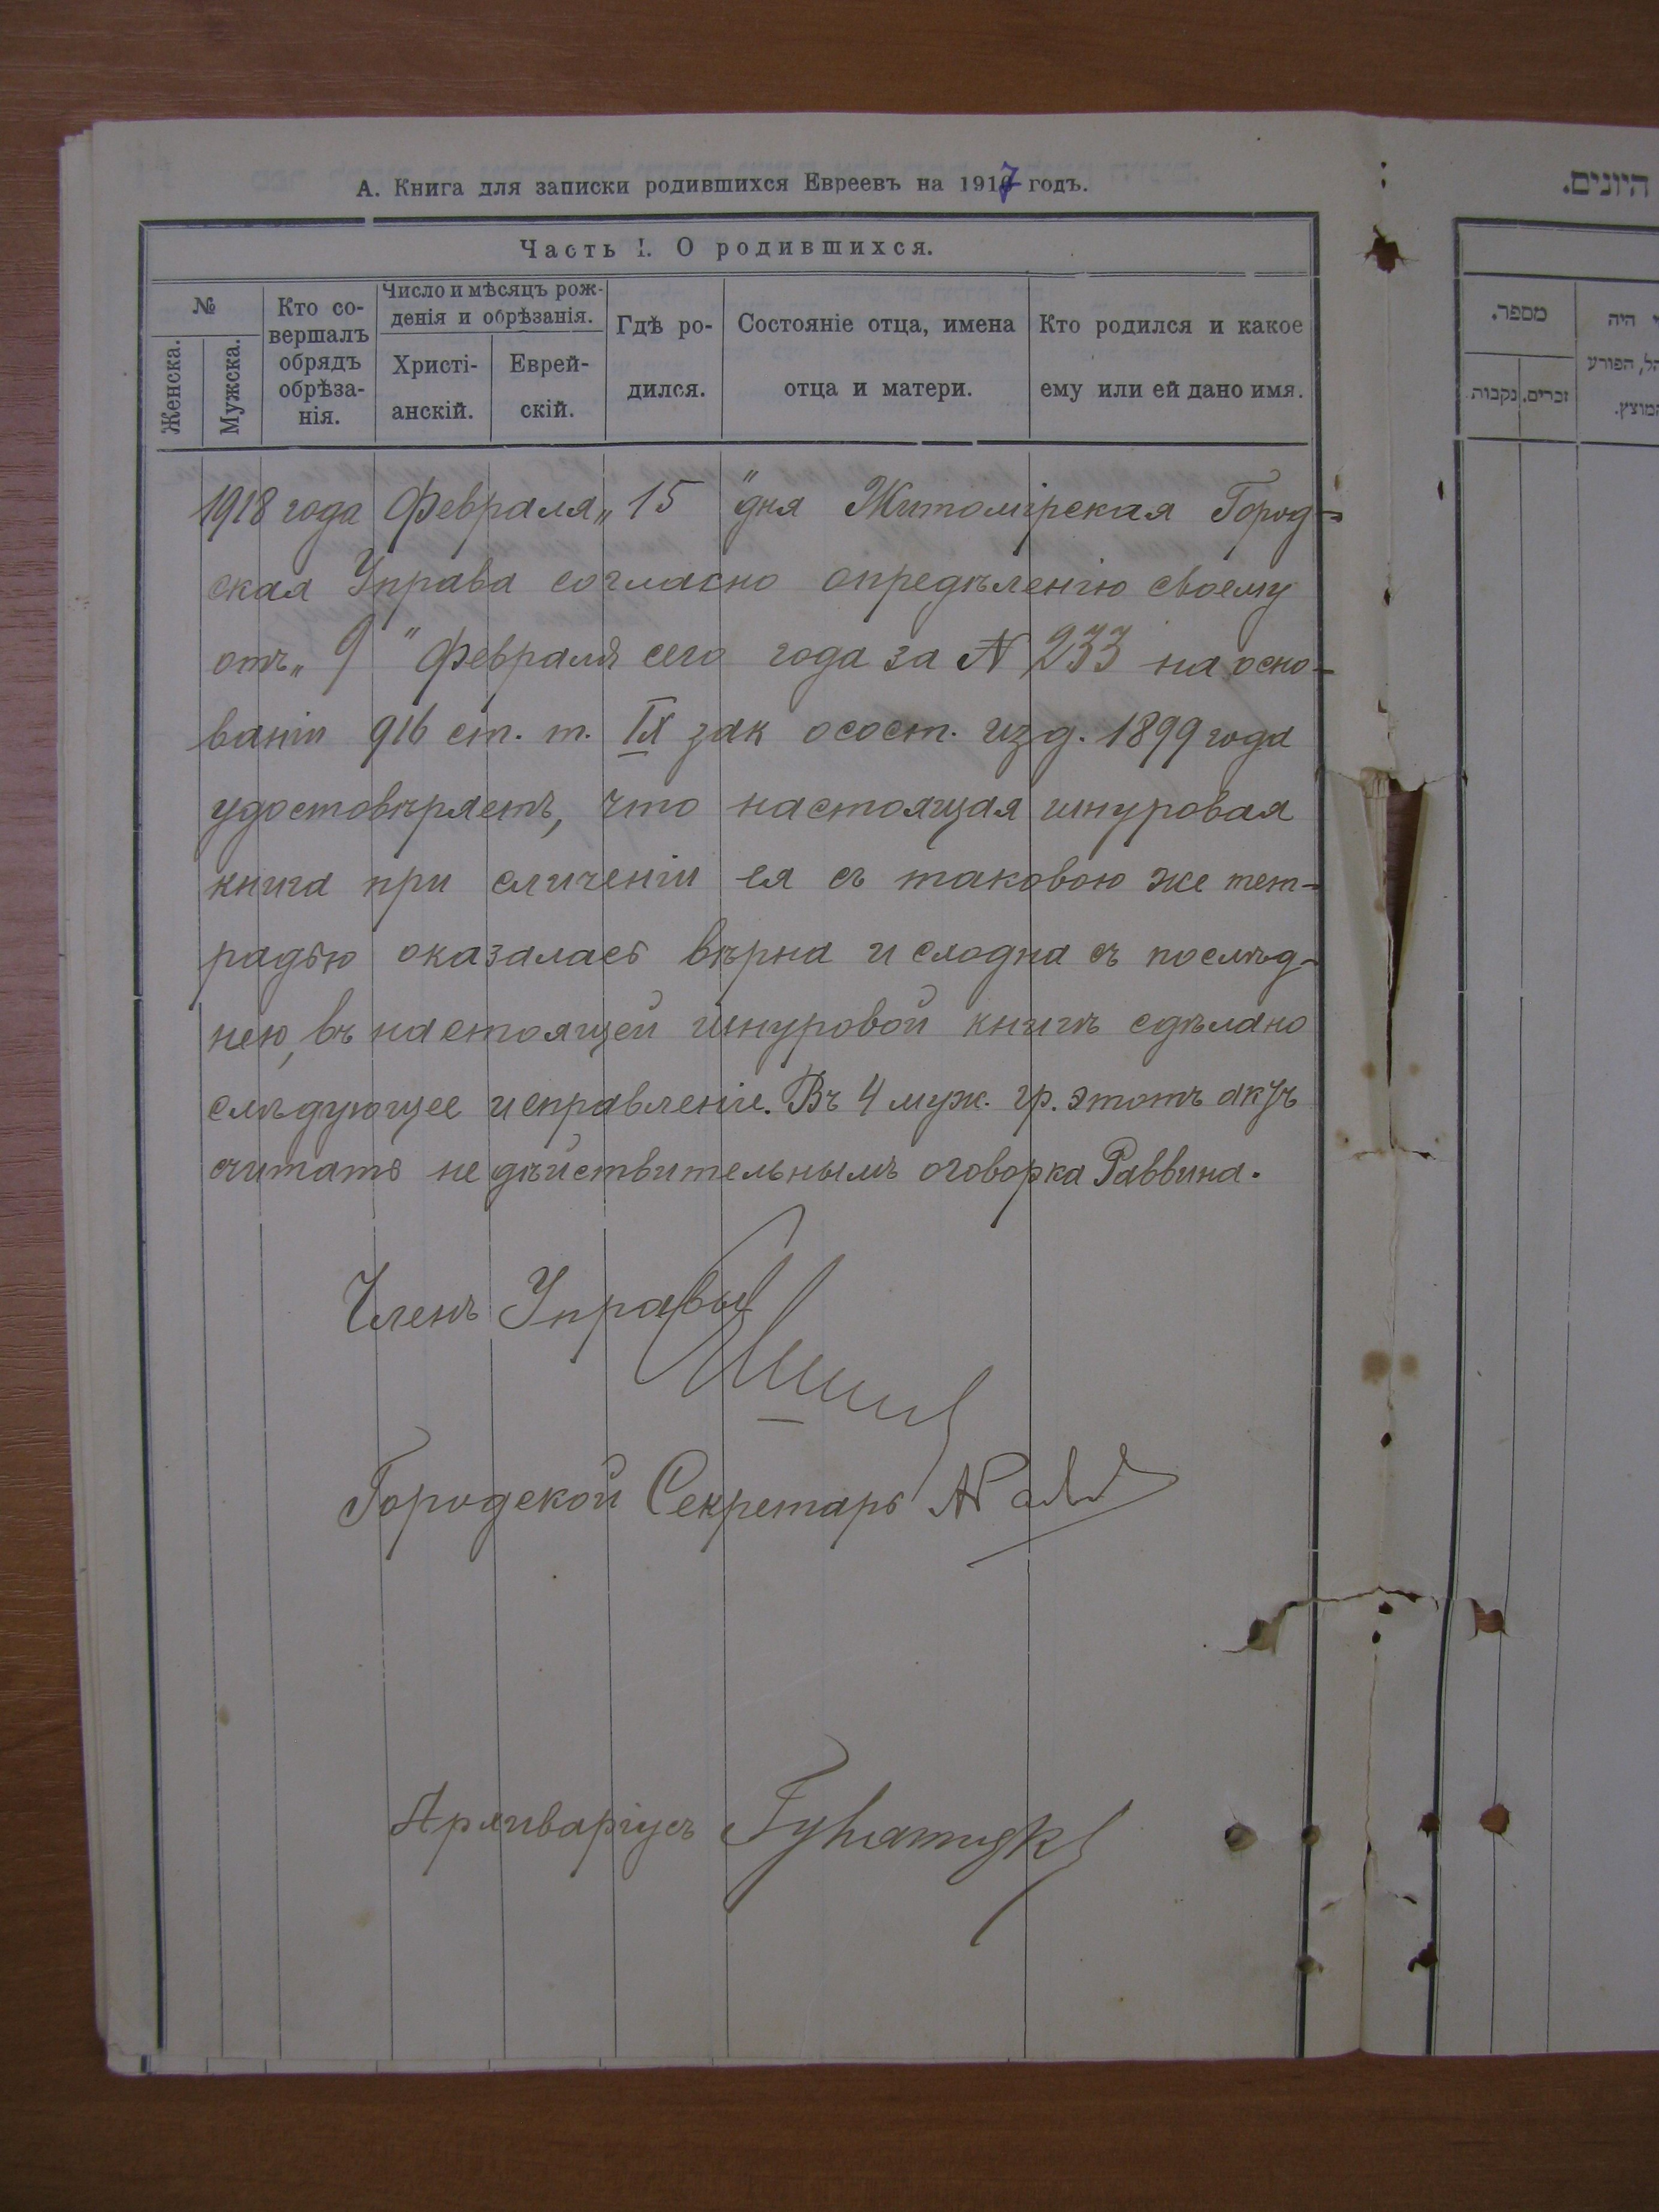 А. Книга для записки родившихся Евреевъ на 1917 годъ.
Часть I. О родившихся.
№
Женска.
Мужска.
Кто со-
вершалъ
обрядъ
обрѣза-
нія.
Число и мѣсяцъ рож-
денія и обрѣзанія.
Христі-
анскій.
Еврей-
скій.
Гдѣ ро-
дился.
Состояніе отца, имена
отца и матери.
Кто родился и какое
ему или ей дано имя.
1918 года Февраля „ 15 " дня Житомірская Город-
ская Управа согласно опредѣленію своему
отъ „ 9 " Февраля сего года за № 233 на осно-
ваніи 916 ст. т. IX зак о сост. изд. 1899 года
удостовѣряетъ, что настоящая шнуровая
книга при сличеніи ея съ таковою же тет-
радью оказалась вѣрна и сходна съ послѣд-
нею, въ настоящей шнуровой книгѣ сдѣлано
слѣдующее исправленіе. Въ 4 муж. гр. этотъ актъ
считать не дѣйствительнымъ оговорка Раввина.
Членъ Управы
Городской Секретарь
Архиваріусъ
היונים.
מספר.
זכרים.
נקבות
היה
הפורע